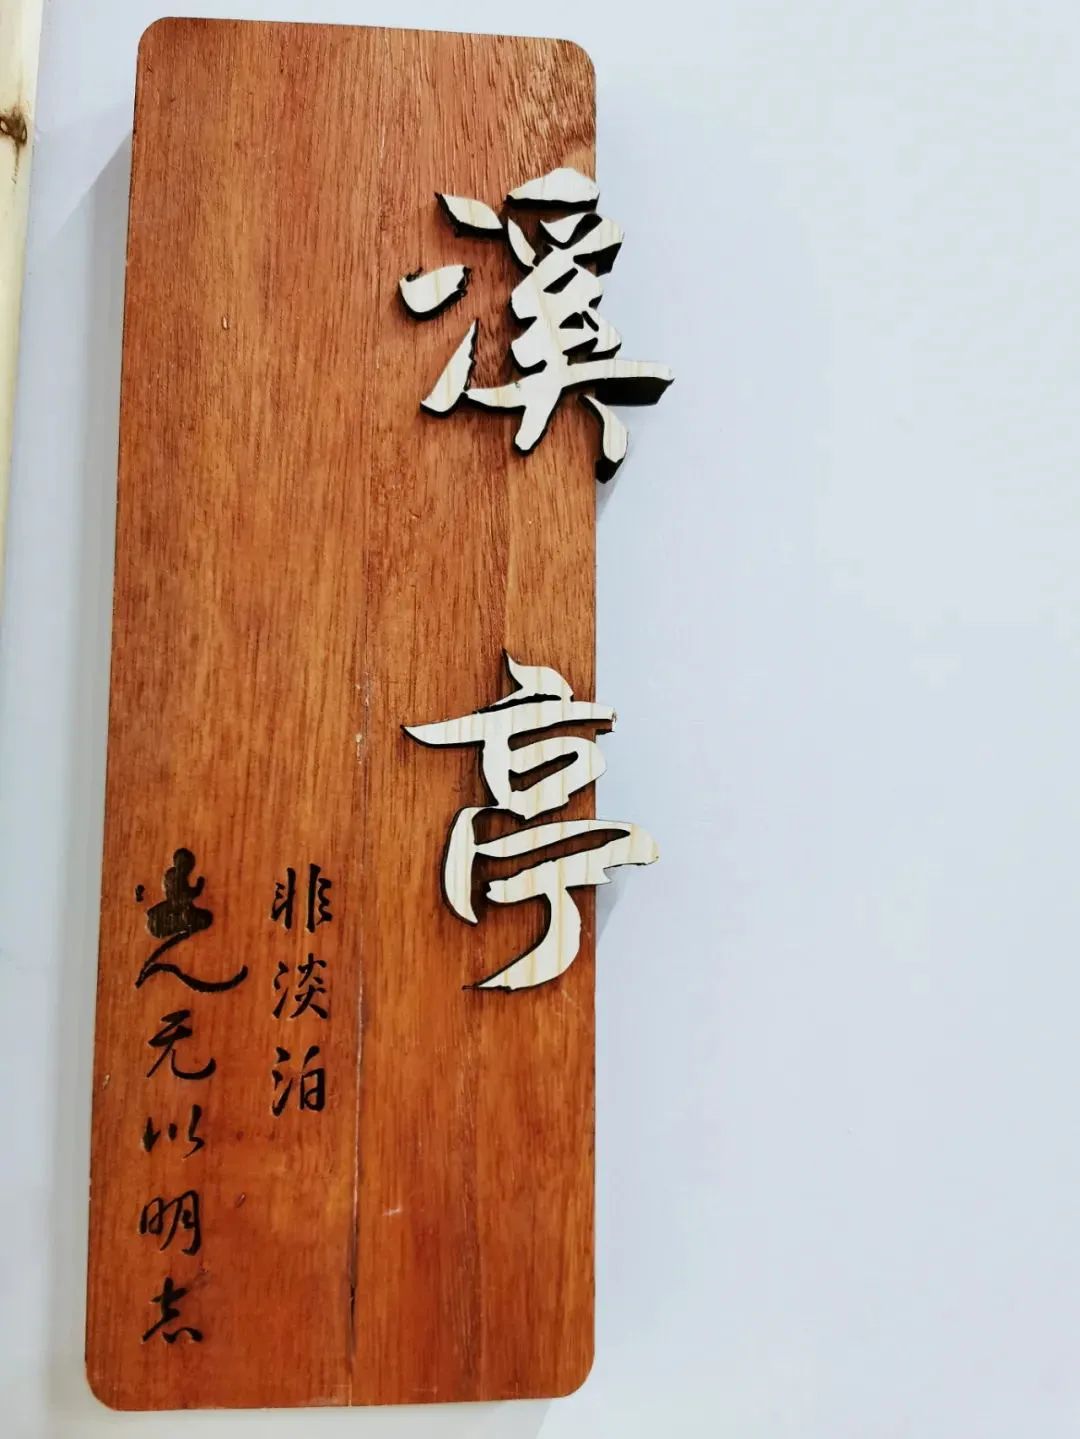 溪亭
非淡泊
无以明志